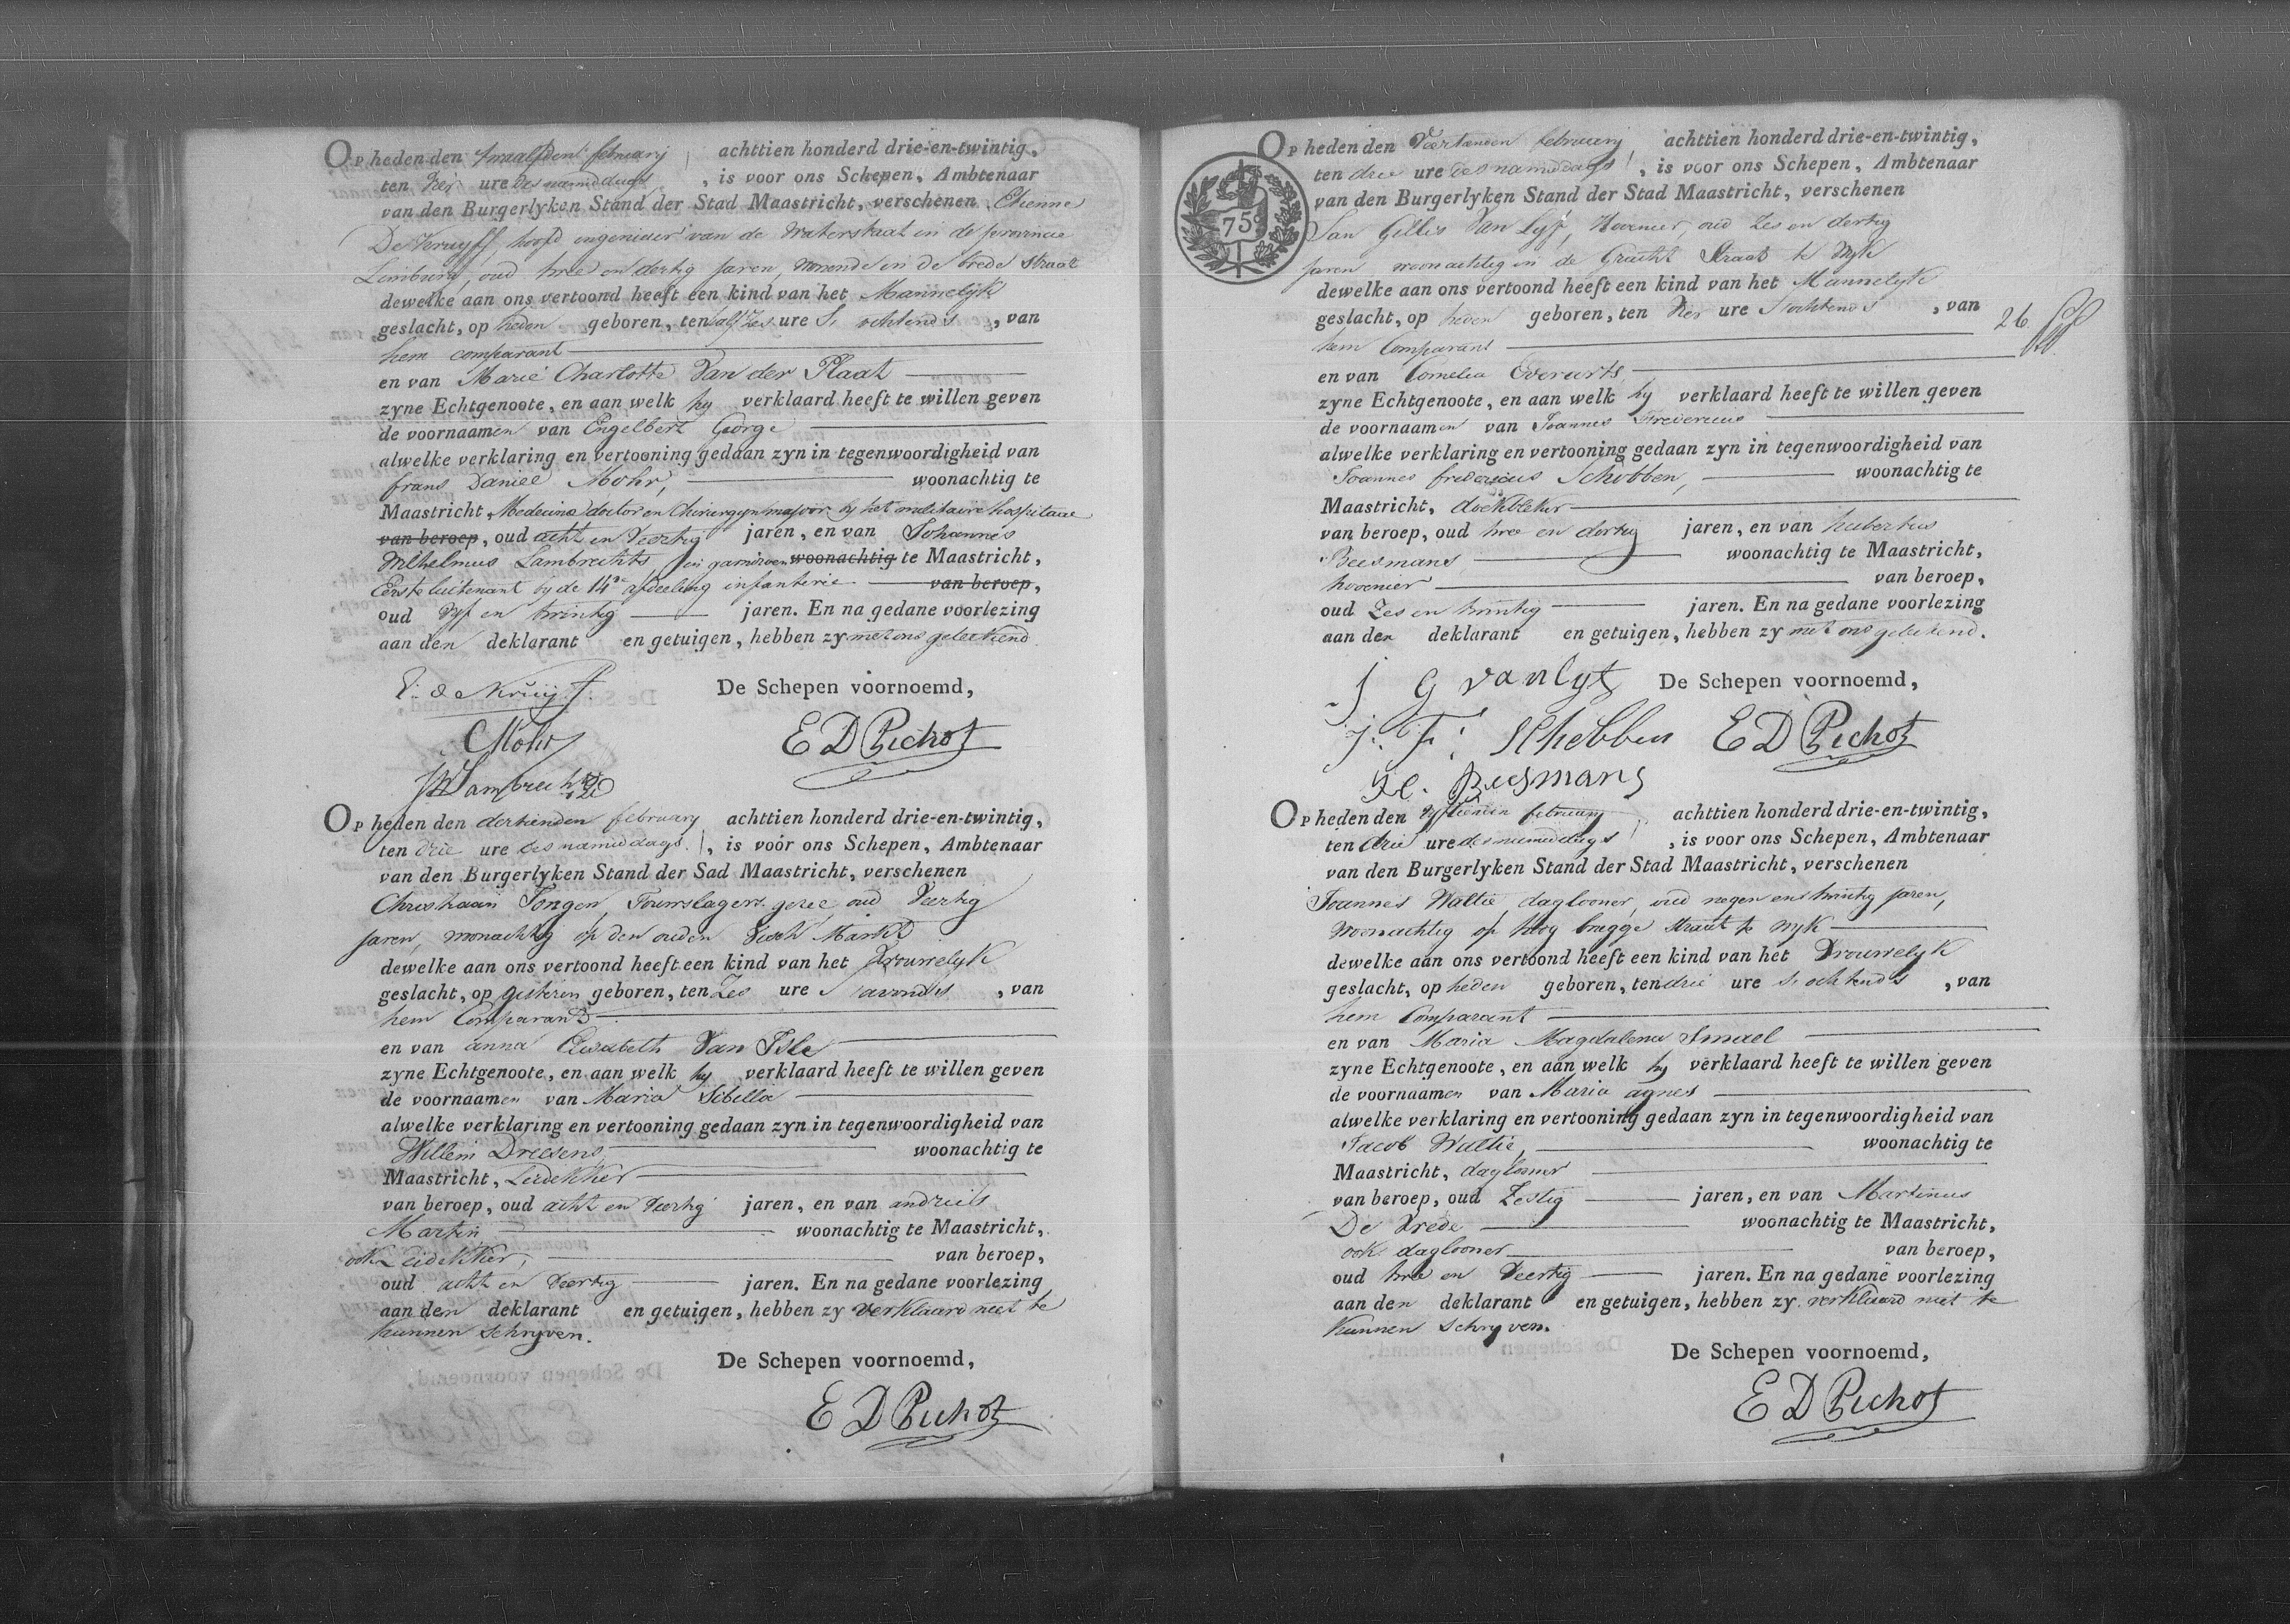 Op heden den twaalfden februarij achttien honderd drie-en-twintig,
ten vier ure des namiddags, is voor ons Schepen, Ambtenaar
van den Burgerlyken Stand der Stad Maastricht, verschenen Etienne
De Kruyff, hoofd ingenieur van de Waterstaat in de provincie
Limburg, oud twee en dertig jaren, wonende in de brede straat
dewelke aan ons vertoond heeft een kind van het Mannelijk
geslacht, op heden geboren, ten half zes ure S. ochtends, van
hem comparant
en van Marie Charlotte Van der Plaat
zyne Echtgenoote, en aan welk hy verklaard heeft te willen geven
de voornaamen van Engelbert George
alwelke verklaring en vertooning gedaan zyn in tegenwoordigheid van
frans Daniel Mohr, woonachtig te
Maastricht, Medecine doctor en Chirurgyn major by het militaire hospitaal
van beroep, oud acht en Veertig jaren, en van Johannes
Wilhelmus Lambrechts, in garnisoen woonachtig te Maastricht,
Eerste luitenant by de 14de afdeeling infanterie van beroep,
oud Vyf en twintig jaren. En na gedane voorlezing
aan den deklarant en getuigen, hebben zy met ons geteekend.
E. de Kruijff
De Schepen voornoemd,
Mohr
E D Pichot
JW Lambrechts
Op heden den dertienden february achttien honderd drie-en-twintig,
ten drie ure des namiddags, is voor ons Schepen, Ambtenaar
van den Burgerlyken Stand der Sad Maastricht, verschenen
Christiaan Jongen, Touwslagers gezel, oud Veertig
jaren, woonachtig op den ouden Visch Markt
dewelke aan ons vertoond heeft een kind van het Vrouwelyk
geslacht, op gisteren geboren, ten Zes ure S avonds, van
hem Comparant
en van anna Elisabeth Van Isle
zyne Echtgenoote, en aan welk hy verklaard heeft te willen geven
de voornaamen van Maria Sibilla
alwelke verklaring en vertooning gedaan zyn in tegenwoordigheid van
Willem Driesens woonachtig te
Maastricht, Leidekker
van beroep, oud acht en Veertig jaren, en van andries
Martin woonachtig te Maastricht,
ook Leidekker, van beroep,
oud acht en Veertig jaren. En na gedane voorlezing
aan den deklarant en getuigen, hebben zy verklaard niet te
kunnen schryven.
De Schepen voornoemd,
E D Pichot
Op heden den Veertienden february achttien honderd drie-en-twintig,
ten drie ure des namiddags, is voor ons Schepen, Ambtenaar
van den Burgerlyken Stand der Stad Maastricht, verschenen
75
Jan Gillis Van Lyt, Hovenier, oud Zes en dertig
jaren woonachtig in de Gracht Straat te Wyk
dewelke aan ons vertoond heeft een kind van het Mannelyk
geslacht, op heden geboren, ten Vier ure S ochtends, van
26.
hem Comparant
en van Cornelia Everarts,
zyne Echtgenoote, en aan welk hy verklaard heeft te willen geven
de voornaamen van Joannes Fredericus
alwelke verklaring en vertooning gedaan zyn in tegenwoordigheid van
Joannes fredericus Schobben, woonachtig te
Maastricht, doekbleker
van beroep, oud twee en dertig jaren, en van hubertus
Beesmans woonachtig te Maastricht,
hovenier van beroep,
oud Zes en twintig jaren. En na gedane voorlezing
aan den deklarant en getuigen, hebben zy met ons geteekend.
J G van lyt
De Schepen voornoemd,
J. F. Schobben
E D Pichot
H. Beesmans
Op heden den Vyftienden february achttien honderd drie-en-twintig,
ten drie ure des namiddags, is voor ons Schepen, Ambtenaar
van den Burgerlyken Stand der Stad Maastricht, verschenen
Joannes Waltie, daglooner, oud negen en twintig jaren,
woonachtig op hoog brugge straat te Wyk
dewelke aan ons vertoond heeft een kind van het Vrouwelyk
geslacht, op heden geboren, ten drie ure S. ochtends, van
hem Comparant
en van Maria Magdalena Smael
zyne Echtgenoote, en aan welk hy verklaard heeft te willen geven
de voornaamen van Maria agnes
alwelke verklaring en vertooning gedaan zyn in tegenwoordigheid van
Jacob Waltie, woonachtig te
Maastricht, daglooner
van beroep, oud Zestig jaren, en van Martinus
De Vrede woonachtig te Maastricht,
ook daglooner van beroep,
oud twee en Veertig jaren. En na gedane voorlezing
aan den deklarant en getuigen, hebben zy verklaard niet te
kunnen schryven.
De Schepen voornoemd,
E D Pichot